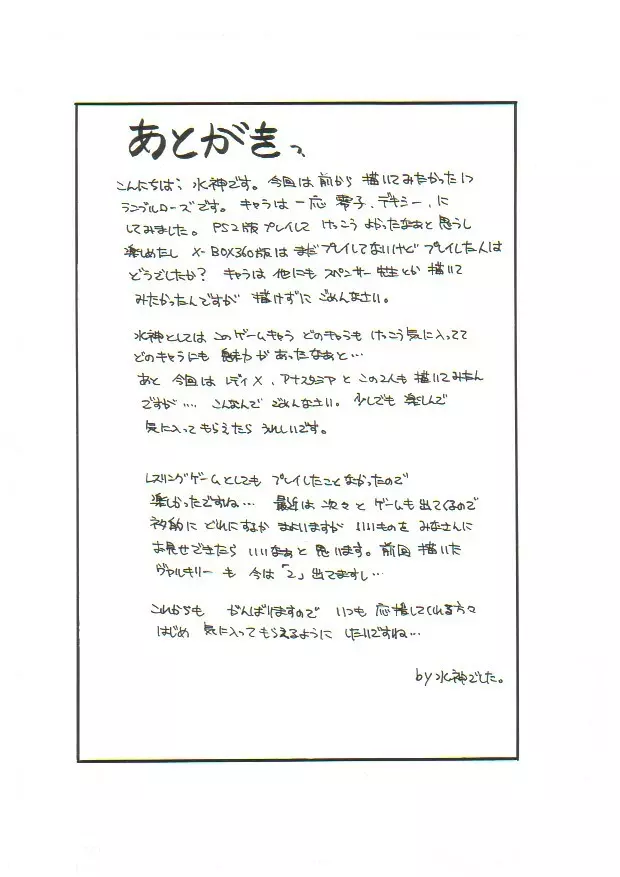 あとがきっ
こんにちは、水神です。今回は前から描いてみたかったの
ランブルローズです。キャラは一応零子、デキシー、に
してみました。PS2版プレイして けっこう よかったなぁと思うし
楽しめたし X-BOX360版は まだプレイしてないけど プレイした人は
どうでしたか? キャラは 他にも スペンサー 先生とか 描いて
みたかったんですが 描けずに ごめんなさい。
水神としては このゲームキャラ どのキャラも けっこう気に入ってて
どのキャラにも 魅力が あったなぁと…
あと 今回は レディX、アナスタシア と この2人も 描いてみたん
ですが…. こんなんで ごめんなさい。少しでも 楽しんで
気に入って もらえたら うれしいです。
レスリングゲームとしても プレイしたこと なかったので
楽しかったですね… 最近は 次々と ゲームも 出てくるので
ネタ的に どれにするか まよいますが いいものを みなさんに
お見せできたら いいなぁと 思います。前回 描いた
ヴァルキリー も 今は「2」出てますし…
これからも がんばりますので いつも 応援してくれる方々
はじめ 気に入って もらえるように したいですね…
by 水神でした。